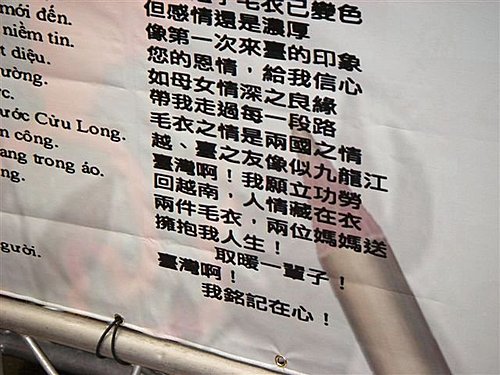 mới đến.
niềm tin.
t diệu.
ường.
c.
ước Cửu Long.
n công.
ang trong áo.
ng.
gười.
毛衣已變色
但感情還是濃厚
像第一次來臺的印象
您的恩情，給我信心
如母女情深之良緣
帶我走過每一段路
毛衣之情是兩國之情
越、臺之友像似九龍江
臺灣啊！我願立功勞
回越南，人情藏在衣
兩件毛衣，兩位媽媽送
擁抱我人生！
取暖一輩子！
臺灣啊！
我銘記在心！